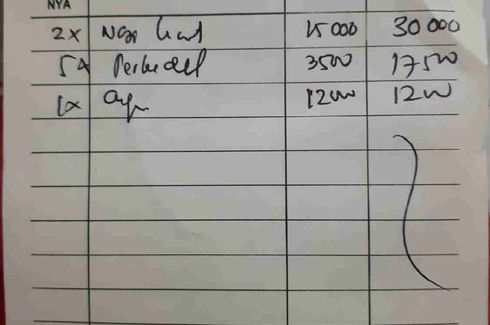 NYA
2x Nasi 15 000 30 000
5x Perkedel 3500 17500
1x 1200 1200